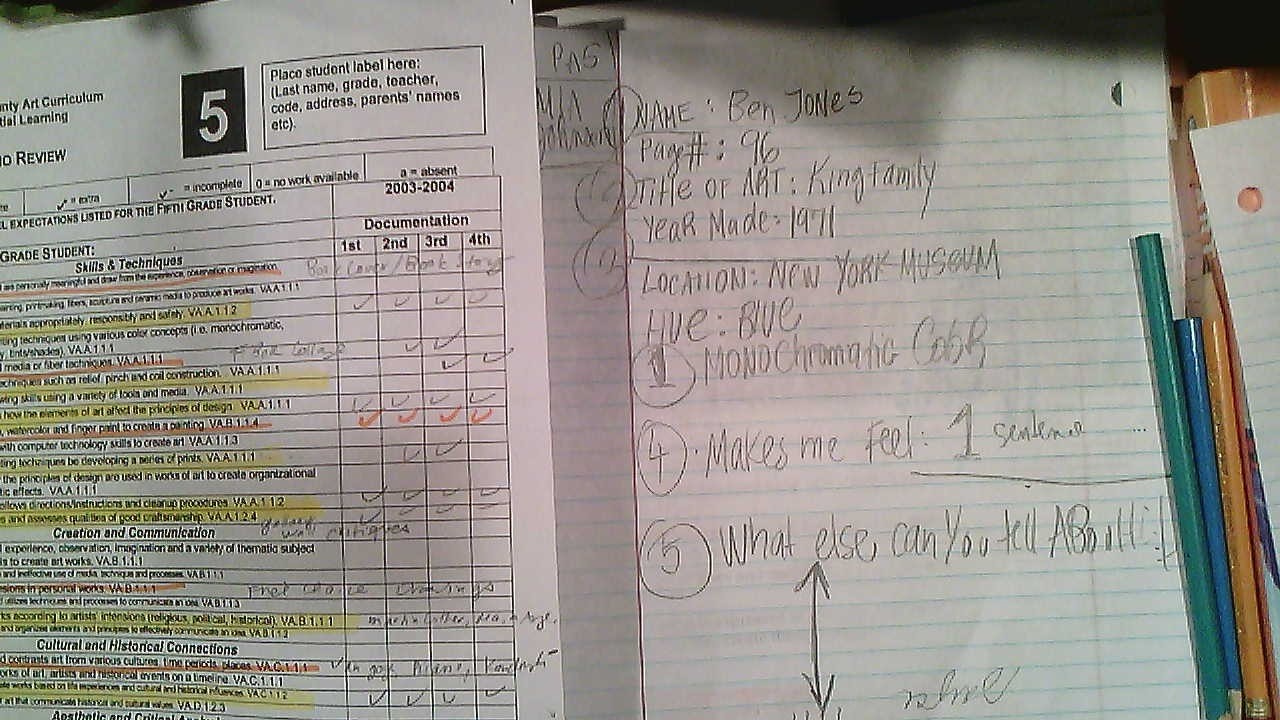 nty Art Curriculum
tial Learning
IO REVIEW
5
Place student label here:
(Last name, grade, teacher,
code, address, parents' names
etc).
= extra
= incomplete
0 = no work available
a = absent
2003-2004
L EXPECTATIONS LISTED FOR THE FIFTH GRADE STUDENT.
Documentation
GRADE STUDENT:
1st 2nd 3rd 4th
Skills & Techniques
are personally meaningful and draw from the experience, observation or imagination.
Book Cover / Book
ainting, printmaking, fibers, sculpture and ceramic media to produce art works. VA.A.1.1.1
terials appropriately, responsibly and safely. VA.A.1.1.2
ting techniques using various color concepts (i.e. monochromatic,
y, tints/shades). VA.A.1.1.1
media or fiber techniques. VA.A.1.1.1
echniques such as relief, pinch and coil construction. VA.A.1.1.1
wing skills using a variety of tools and media. VA.A.1.1.1
how the elements of art affect the principles of design. VA.A.1.1.1
, watercolor and finger paint to create a painting. VA.B.1.1.4
with computer technology skills to create art. VA.A.1.1.3
ting techniques be developing a series of prints. VA.A.1.1.1
the principles of design are used in works of art to create organizational
ic effects. VA.A.1.1.1
ollows directions/instructions and cleanup procedures. VA.A.1.1.2
s and assesses qualities of good craftsmanship. VA.A.1.2.4
critiques
Creation and Communication
l experience, observation, imagination and a variety of thematic subject
is to create art works. VA.B.1.1.1
and ineffective use of media, technique and processes. VA.B.1.1.1
sions in personal works. VA.B.1.1.1
utilizes techniques and processes to communicate an idea. VA.B.1.1.3
rks according to artists' intensions (religious, political, historical). VA.B.1.1.1
and organizes elements and principles to effectively communicate an idea. VA.B.1.1.2
Cultural and Historical Connections
d contrasts art from various cultures, time periods, places. VA.C.1.1.1
orks of art, artists and historical events on a timeline. VA.C.1.1.1
ate works based on life experiences and cultural and historical influences. VA.C.1.1.2
r art that communicate historical and cultural values. VA.D.1.2.3
Aesthetic and Critical
PAS
NAME: Ben JONES
Page#: 96
Title of ART: King Family
Year Made: 1971
LOCATION: NEW YORK MUSEUM
HUE: BLUE
1 MONOChromatic
4 Makes me Feel: 1 sentence ...
5 What else can You tell ABout it